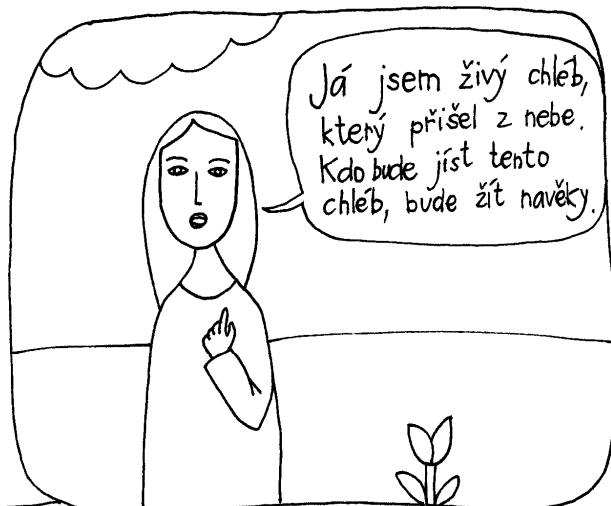 Já jsem živý chléb,
který přišel z nebe.
Kdo bude jíst tento
chléb, bude žít navěky.